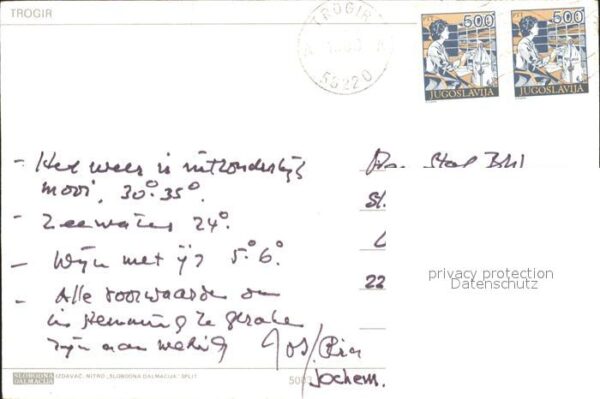 TROGIR
TROGIR
58220
PTT 500
JUGOSLAVIJA
PTT 500
JUGOSLAVIJA
- Het weer is uitzonderlijk
mooi, 30° 35°.
- Zeewater 24°.
- Wijn met ijs 5° 6°.
- Alle voorwaarden om
in stemming te geraken
zijn aanwezig
Jos/Ria
Jochem.
22
privacy protection
Datenschutz
SLOBODNA
DALMACIJA
IZDAVAČ: NITRO „SLOBODNA DALMACIJA" SPLIT